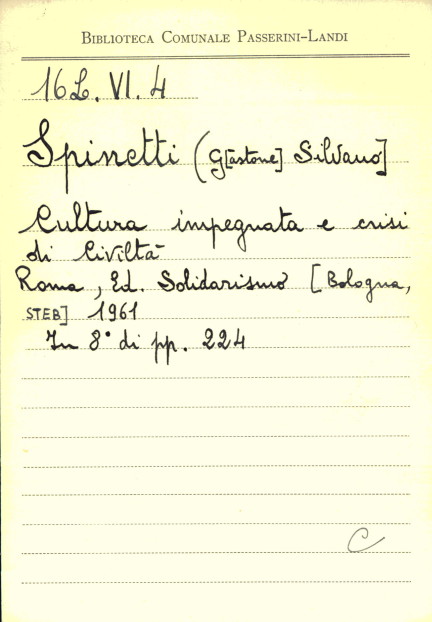 BIBLIOTECA COMUNALE PASSERINI-LANDI
16L. VI. 4
Spinetti (G[astone] Silvano]
Cultura impegnata e crisi
di Civiltà
Roma, Ed. Solidarismo [Bologna,
STEB] 1961
In 8° di pp. 224
C